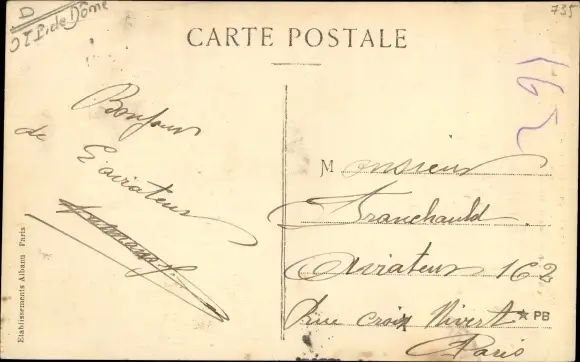 D
Puy de Dôme
735
CARTE POSTALE
162
Bonjour
de
L'aviateur
Monsieur
Franchauld
Aviateur 162
Rue Croix Nivert
★ PB
Paris
Etablissements Albann Paris